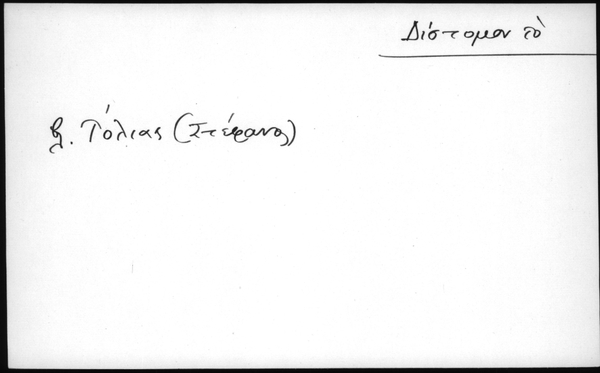 Δίστομον τὸ
βλ. Τόλιας (Στέφανος)